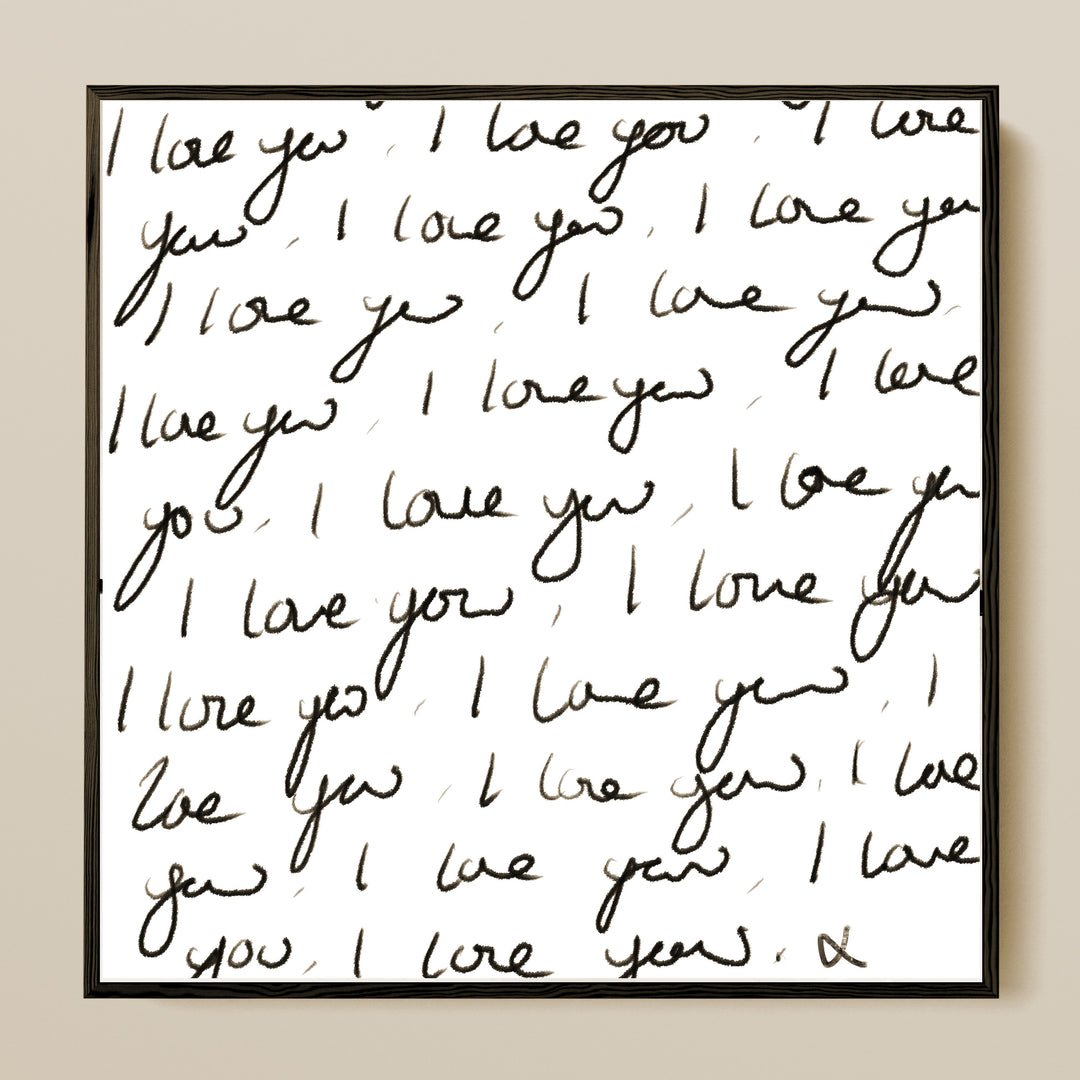 I love you, I love you, I love
you, I love you, I love you
I love you, I love you,
I love you, I love you, I love
you, I love you, I love you
I love you, I love you
I love you, I love you, I
love you, I love you, I love
you, I love you, I love
you, I love you.